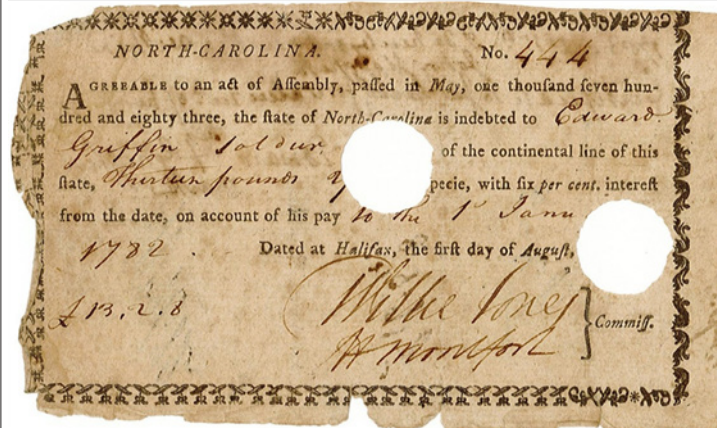 NORTH-CAROLINA. No. 444
AGREEABLE to an act of Aſſembly, paſſed in May, one thouſand ſeven hun-
dred and eighty three, the ſtate of North-Carolina is indebted to Edward
Griffin Soldier of the continental line of this
ſtate, thirteen pounds pecie, with ſix per cent. intereſt
from the date, on account of his pay to the 1st Janu
1782. Dated at Halifax, the firſt day of Auguſt,
£13.2.8
Willie Jones
Commiſſ.
H Montfort